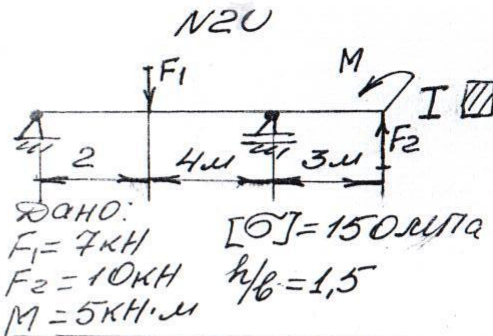 N20
F₁
M
I
F₂
2
4м
3м
Дано:
F₁ = 7кН
F₂ = 10кН
M = 5кН·м
[σ] = 150мПа
h/b = 1,5